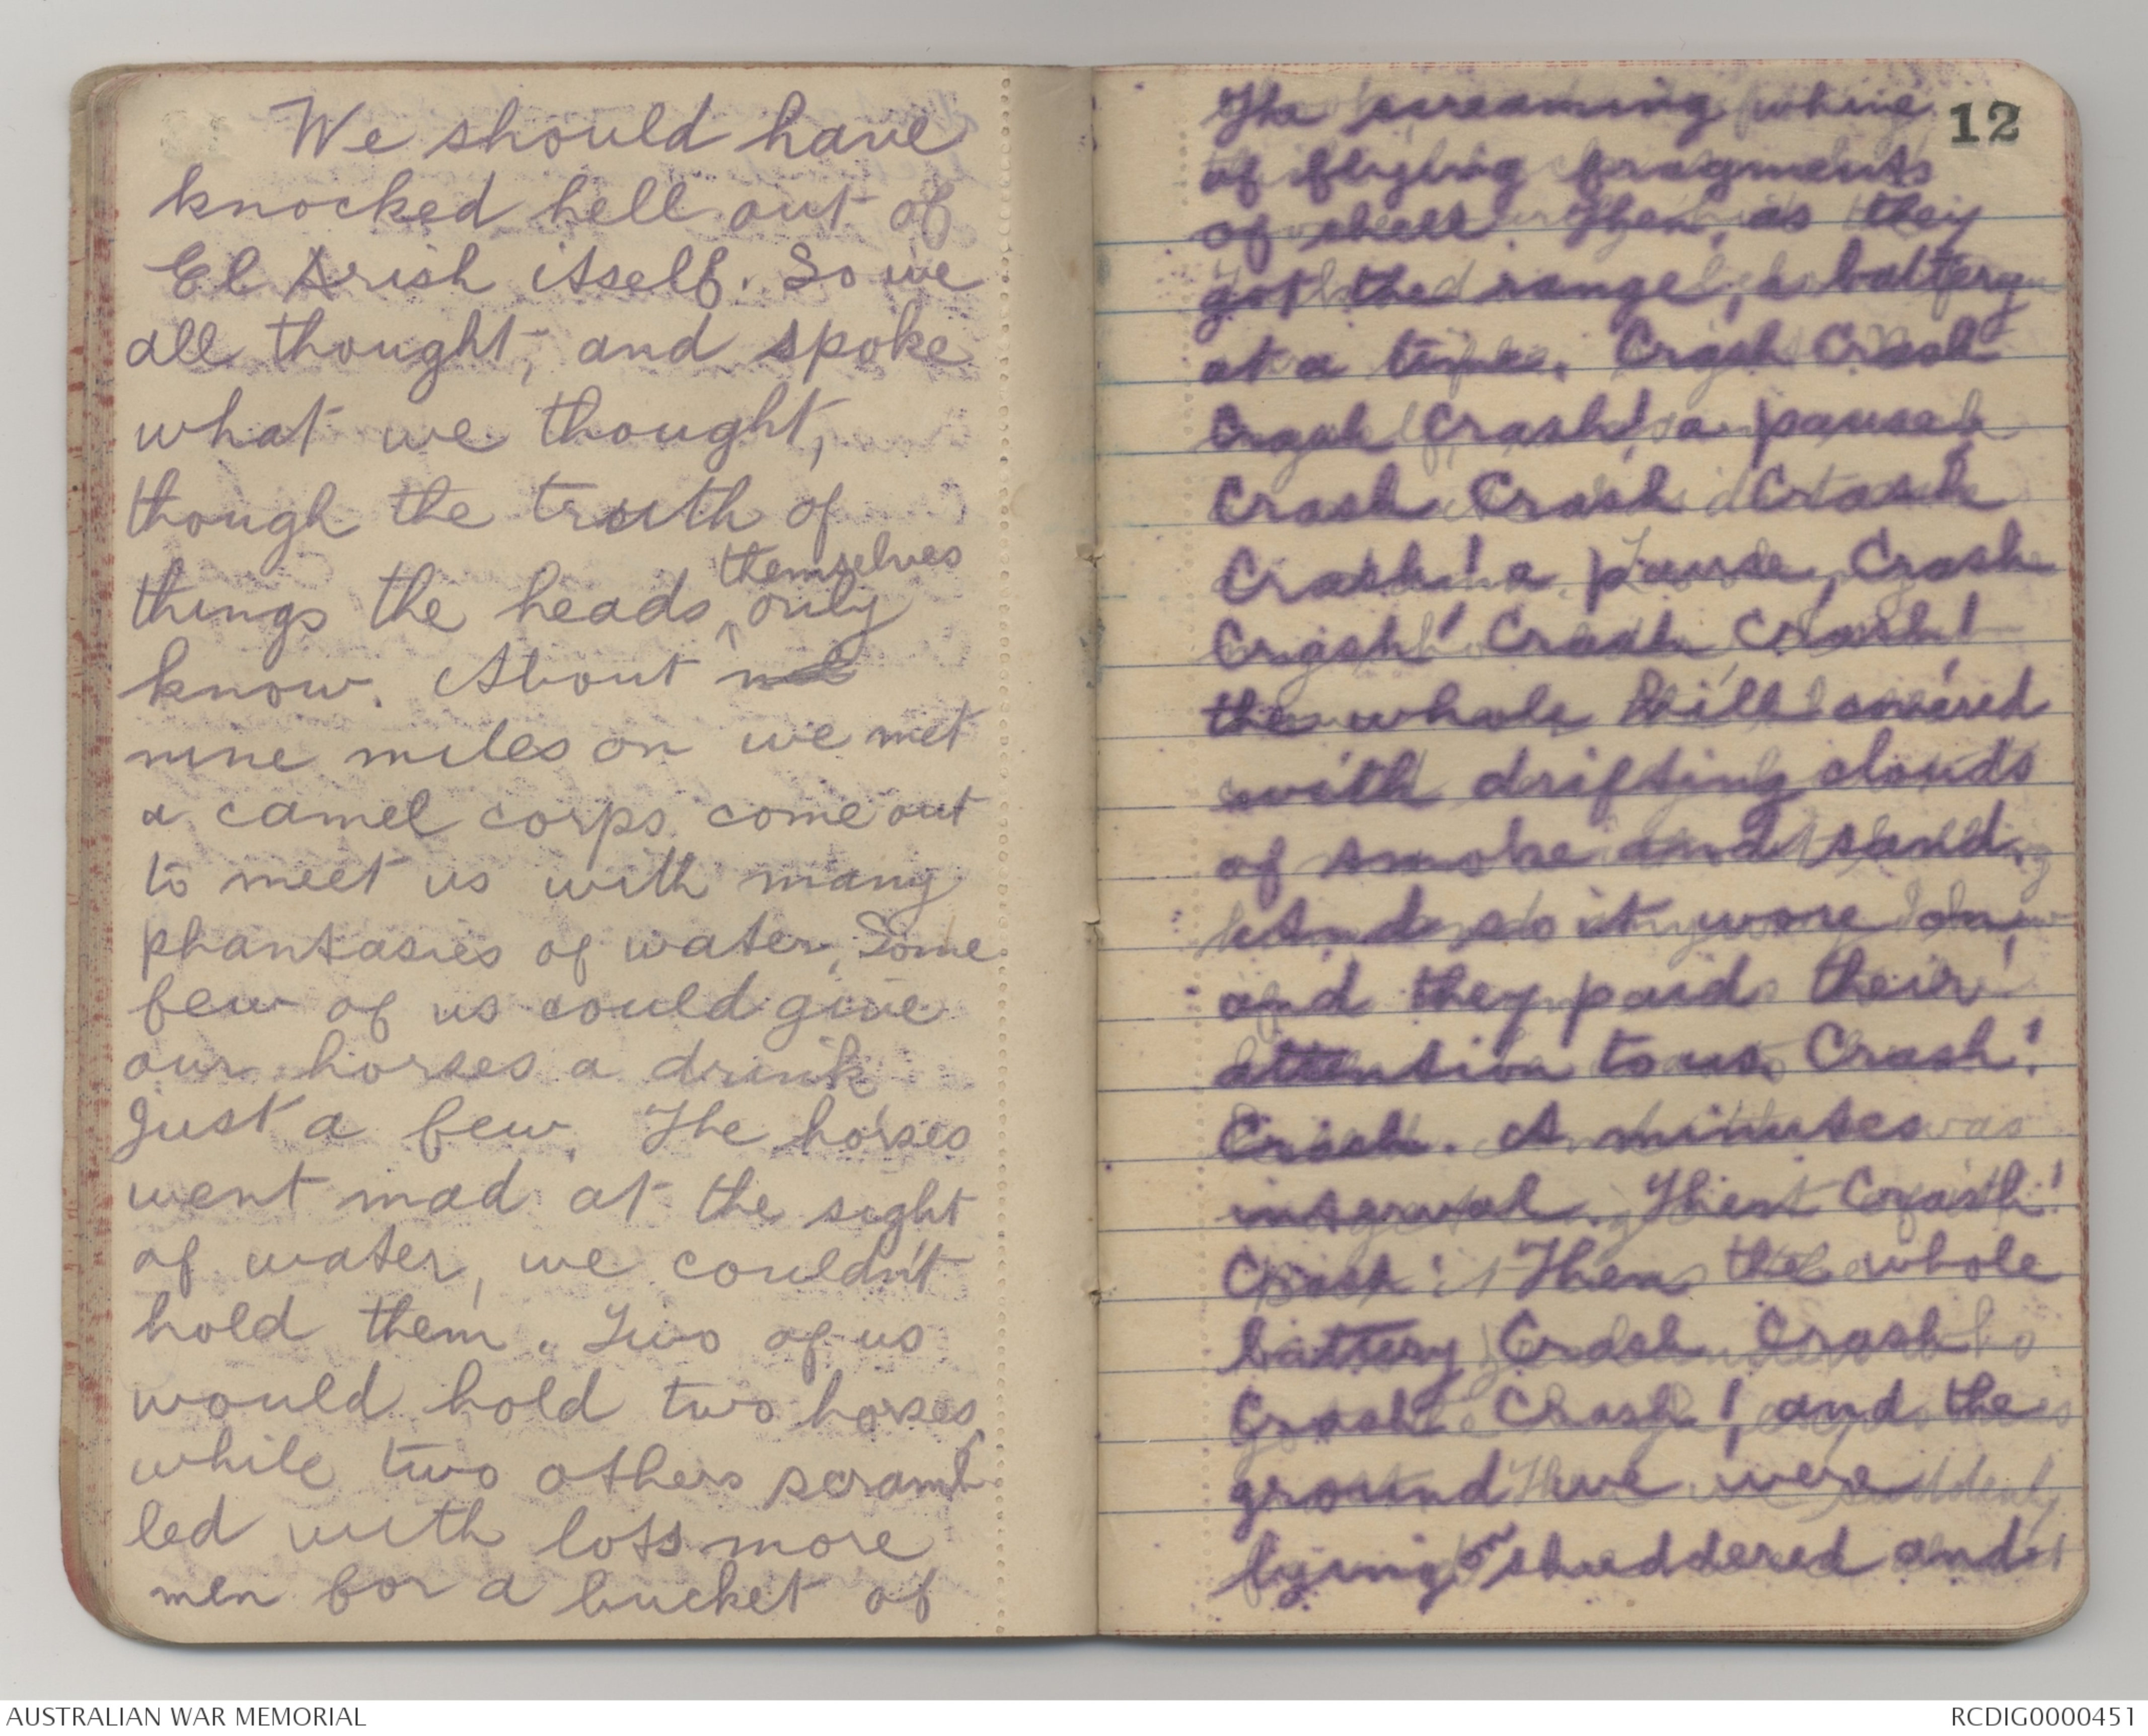 We should have
knocked hell out of
El Arish itself. So we
all thought, and spoke
what we thought,
though the truth of
themselves
things the heads ^ only
know. About
nine miles on we met
a camel corps come out
to meet us with many
phantasies of water, Some
few of us could give
our horses a drink
Just a few. The horses
went mad at the sight
of water, we couldn't
hold them. Two of us
would hold two horses,
while two others scramb
led with lots more
men for a bucket of
12
The screaming whine
of flying fragments
of shell. Then, as they
got the range, a battery
at a time. Crash Crash
Crash Crash! a pause,
Crash Crash Crash
Crash! a pause, Crash
Crash! Crash Crash!
the whole hill covered
with drifting clouds
of smoke and sand.
And so it wore on,
and they paid their
attention to us. Crash!
Crash. A minutes
interval. Then Crash!
Crash! Then the whole
battery Crash Crash
Crash Crash!, and the
ground we were
lying on shuddered and
AUSTRALIAN WAR MEMORIAL
RCDIG0000451